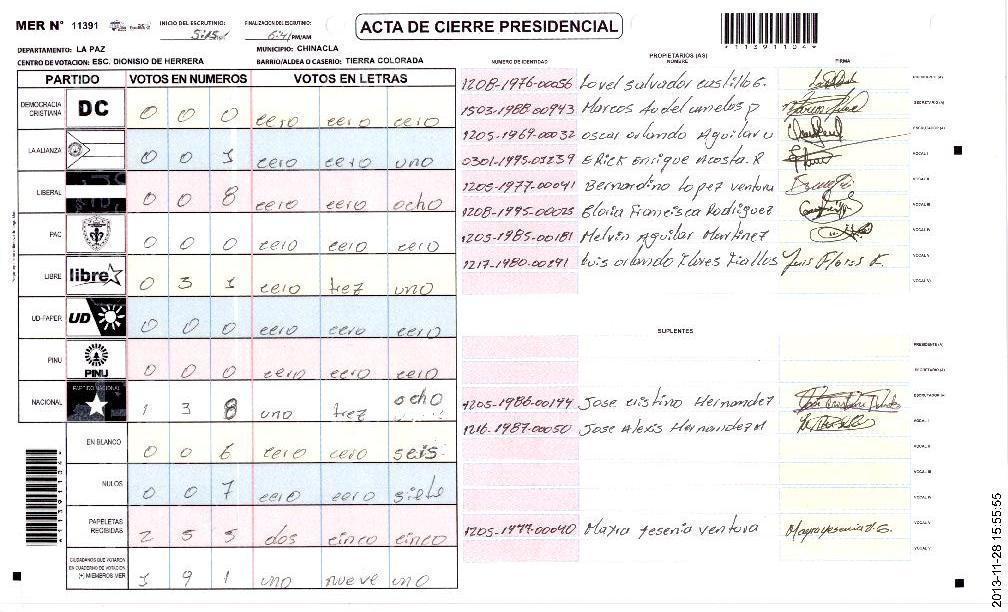 MER N° 11391
INICIO DEL ESCRUTINIO:
FINALIZACION DEL ESCRUTINIO:
PM/AM
ACTA DE CIERRE PRESIDENCIAL
11391104
DEPARTAMENTO: LA PAZ
MUNICIPIO: CHINACLA
CENTRO DE VOTACION: ESC. DIONISIO DE HERRERA
BARRIO/ALDEA O CASERIO: TIERRA COLORADA
PARTIDO VOTOS EN NUMEROS VOTOS EN LETRAS
DEMOCRACIA CRISTIANA DC 0 0 0 cero cero cero
LA ALIANZA 0 0 1 cero cero uno
LIBERAL 0 0 8 cero cero ocho
PAC 0 0 0 cero cero cero
LIBRE libre 0 3 1 cero trez uno
UD-FAPER UD 0 0 0 cero cero cero
PINU PINU 0 0 0 cero cero cero
NACIONAL PARTIDO NACIONAL 1 3 8 uno trez ocho
EN BLANCO 0 0 6 cero cero seis
NULOS 0 0 7 cero cero siete
PAPELETAS RECIBIDAS 2 5 5 dos cinco cinco
CIUDADANOS QUE VOTARON EN CUADERNO DE VOTACION (+) MIEMBROS MER 1 9 1 uno nueve uno
PROPIETARIOS (AS)
NUMERO DE IDENTIDAD NOMBRE FIRMA
1208-1976-00056 Lovel Salvador castillo G. PRESIDENTE (A)
1503-1988-00943 Marcos SECRETARIO (A)
1205-1969-00032 oscar orlando Aguilar ESCRUTADOR (A)
0301-1995-01239 ERick Enrique Acosta. R VOCAL I
1205-1977-00041 Bernardino Lopez ventura VOCAL II
1208-1995-00023 Gloria Francisca Rodriguez VOCAL III
1205-1985-00181 Melvin Aguilar Martinez VOCAL IV
1217-1980-00291 Luis orlando Flores Fiallos Luis Flores F. VOCAL V
VOCAL VI
SUPLENTES
PRESIDENTE (A)
SECRETARIO (A)
1205-1986-00144 Jose cristino Hernandez ESCRUTADOR (A)
1216-1987-00050 Jose Alexis Hernandez M VOCAL I
VOCAL II
VOCAL III
VOCAL IV
1205-1977-00040 Mayra yesenia ventura Mayra yesenia V. G. VOCAL V
VOCAL VI
2013-11-28 15:55:55